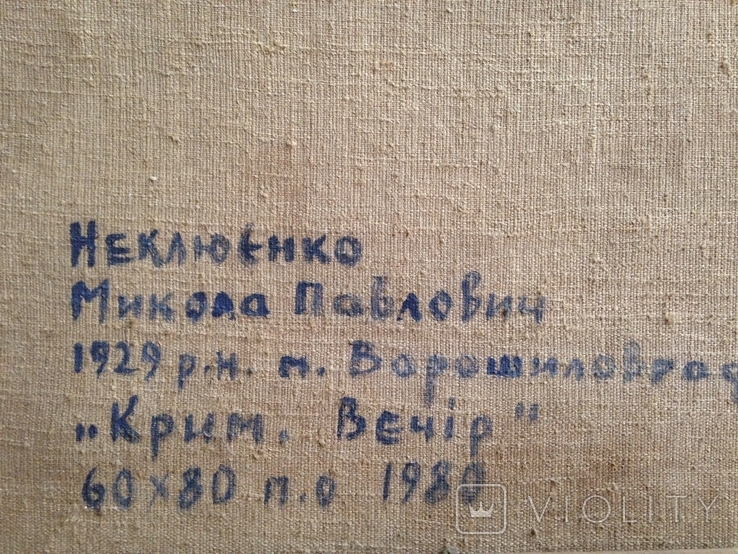 Неклюєнко
Микола Павлович
1929 р.н. м. Ворошиловград
„Крим. Вечір"
60х80 п.о 1980
VIOLITY